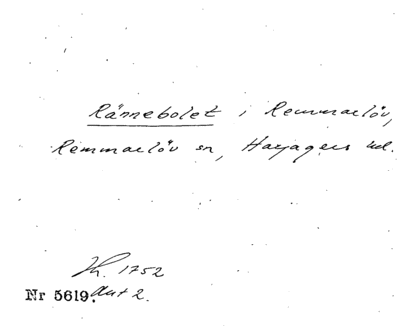 Rännebolet i Remmarlöv,
Remmarlöv sn, Harjagers hd.
Kh. 1752
Nr 5619. Akt 2.